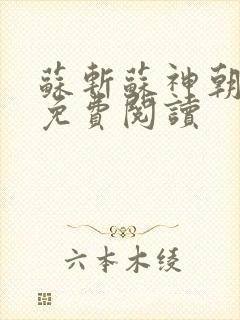 蘇斬蘇神朝
免費閱讀
六本木绫